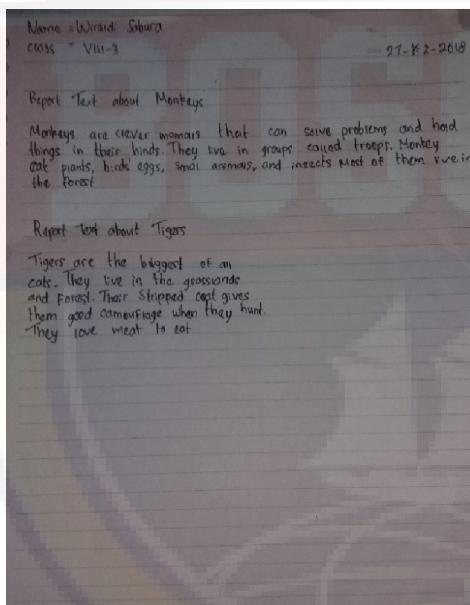 Name = Wiraldi Sabura
Class = VIII-3
27-2-2018
Report Text about Monkeys
Monkeys are clever mamals that can solve problems and hold
things in their hinds. They live in groups called troops. Monkey
eat plants, birds eggs, smal animals, and insects Most of them live in
the Forest
Report Text about Tigers
Tigers are the biggest of all
cats. They live in the grasslands
and Forest. Their Stripped coat gives
them good camouflage when they hunt.
They love meat to eat
BOS